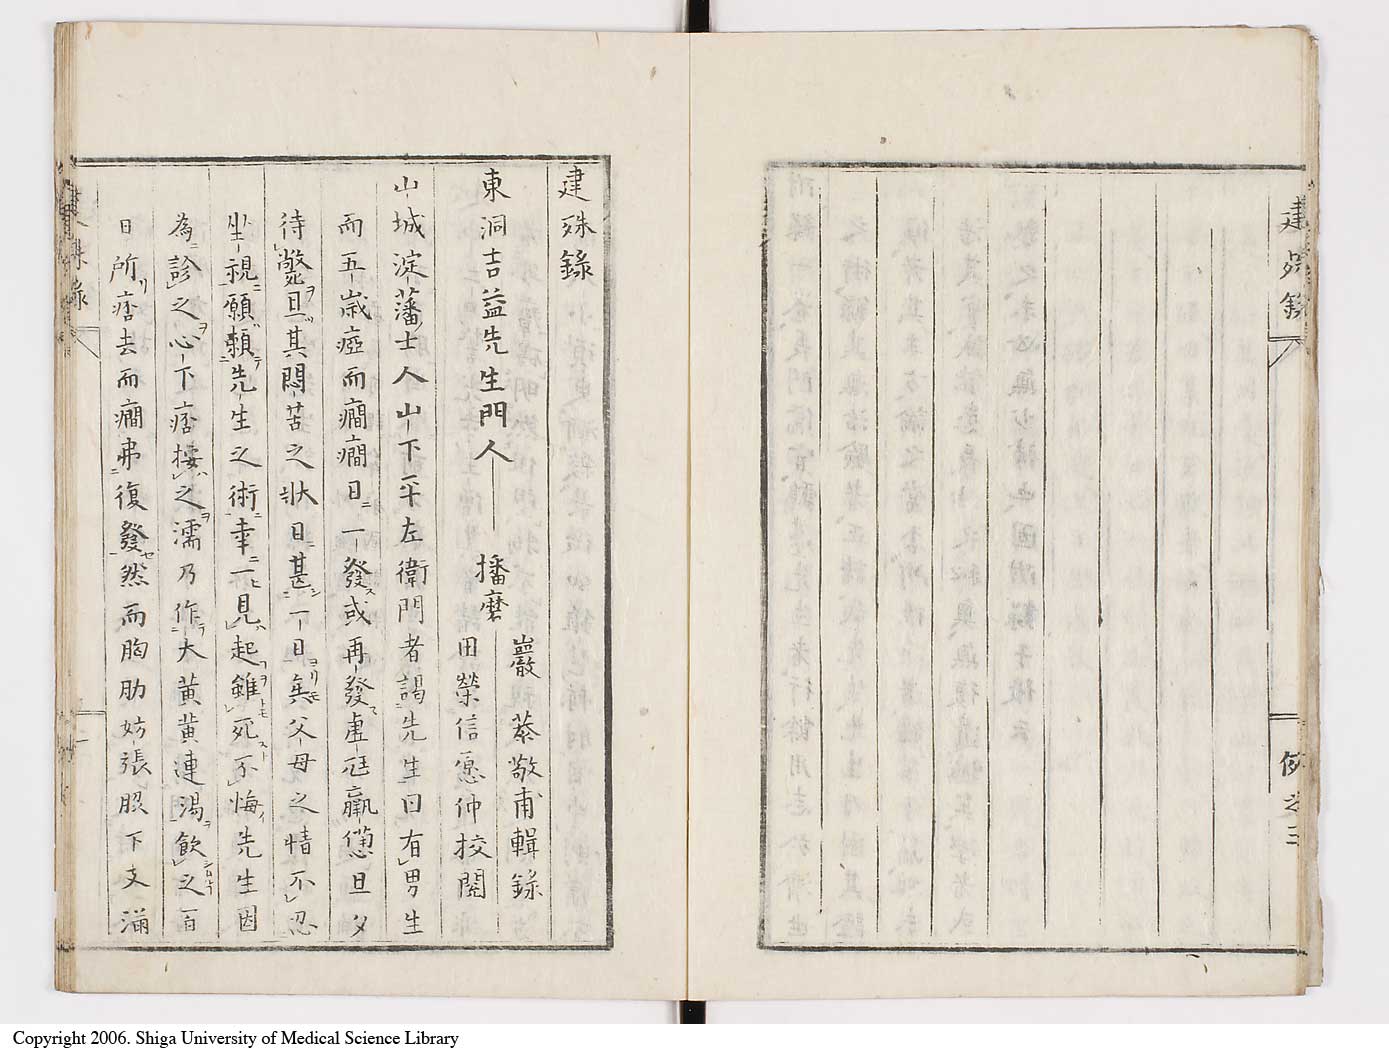 建殊録
例之三
建殊録
東洞吉益先生門人
播磨
巖 恭敬甫輯録
田榮信愿仲挍閲
山城淀藩士人山下平左衛門者謁先生曰有男生
而五歳瘂而癇癇日一發或再發虚尫羸憊旦夕
待斃且其悶苦之狀日甚一日矣父母之情不忍
坐視願頼先生之術幸一見起雖死不悔先生因
為診之心下痞按之濡乃作大黄黄連湯飲之百
日所痞去而癇弗復發然而胸肋妨張脇下支滿
建殊録
Copyright 2006. Shiga University of Medical Science Library